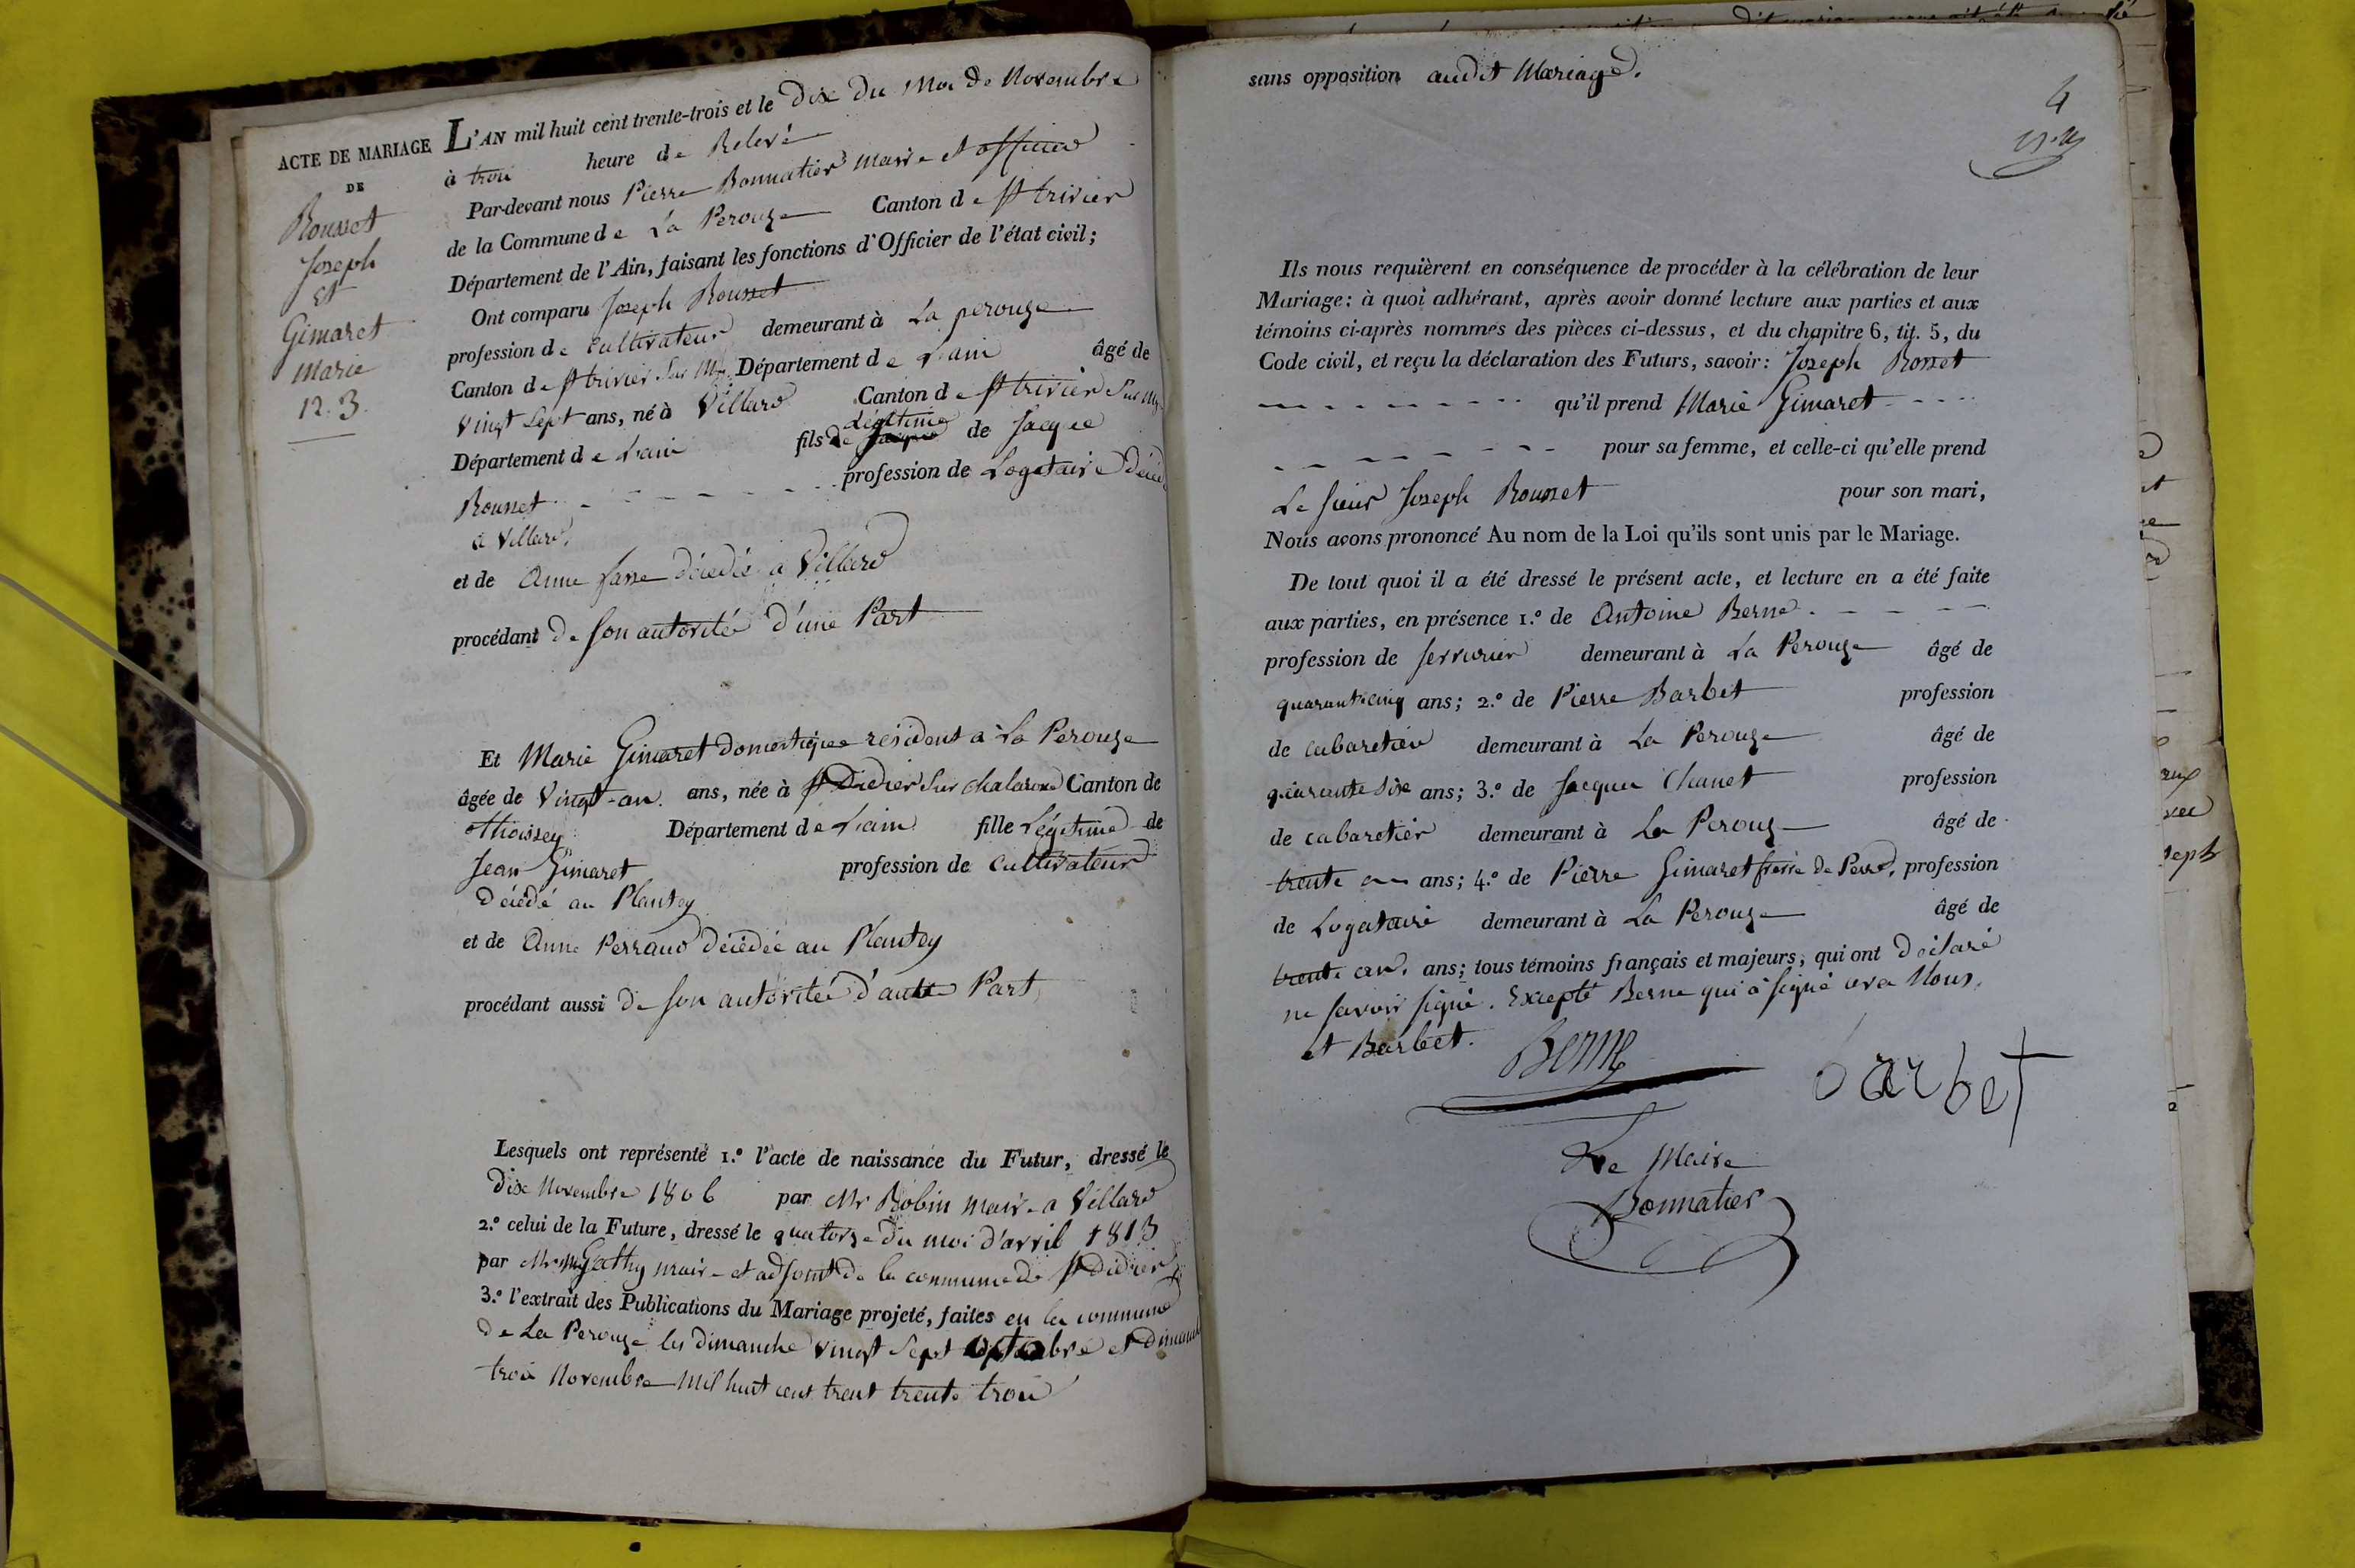 ACTE DE MARIAGE
DE
Rousset
Joseph
et
Gimaret
Marie
12. 3.
L'AN mil huit cent trente-trois et le Dix Du Moi De Novembre
à troi heure de Relevé
Par-devant nous Pierre Bonnatier Maire et officier
de la Commune de La Perouze Canton de St trivier
Département de l'Ain, faisant les fonctions d'Officier de l'état civil;
Ont comparu Joseph Rousset
profession de cultivateur demeurant à La perouze
Canton de St trivier Sur My Département de Lain âgé de
vingt Sept ans, né à Villard Canton de St trivier Sur My
Légitime
Département de Lain fils de de Jacque
Rousset profession de Logataire
a Villard,
et de Anne décédée a Villard
procédant De son autoritée d'une Part
Et Marie Gimaret domestique résident a La Perouze
âgée de Vingt-an. ans, née à St Didier Sur chalarone Canton de
thoissey Département de Lain fille Légitime de
Jean Gimaret profession de cultivateur
Décédé au Plantey
et de Anne Perraud décédée au Plantey
procédant aussi De son autoritée d'autre Part
Lesquels ont représenté 1.º l'acte de naissance du Futur, dressé le
Dix Novembre 1806 par Mr Robin maire a Villard
2.º celui de la Future, dressé le quatorze du moi d'avril 1813
par Mr maire et adjoint de la commune de St Didier
3.º l'extrait des Publications du Mariage projeté, faites en la commune
De La Perouze les dimanche vingt Sept et
troi Novembre mil huit cent trent trente troi
sans opposition audit Mariage.
4
Ils nous requièrent en conséquence de procéder à la célébration de leur
Mariage: à quoi adhérant, après avoir donné lecture aux parties et aux
témoins ci-après nommés des pièces ci-dessus, et du chapitre 6, tit. 5, du
Code civil, et reçu la déclaration des Futurs, savoir: Joseph Rosset
qu'il prend Marie Gimaret
pour sa femme, et celle-ci qu'elle prend
Le Sieur Joseph Rousset pour son mari,
Nous avons prononcé Au nom de la Loi qu'ils sont unis par le Mariage.
De tout quoi il a été dressé le présent acte, et lecture en a été faite
aux parties, en présence 1.º de Antoine Berne
profession de serrurier demeurant à La Perouze âgé de
quarante cinq ans; 2.º de Pierre Barbet profession
de cabaretier demeurant à La Perouze âgé de
quarante dix ans; 3.º de Jacque Chanet profession
de cabaretier demeurant à La Perouze âgé de
trente an ans; 4.º de Pierre Gimaret profession
de Logataire demeurant à La Perouze âgé de
trente an. ans; tous témoins français et majeurs, qui ont déclaré
ne savoir signé. Excepté Berne qui a signé avec Nous,
et Barbet.
Berne
barbet
Le Maire
Bonnatier